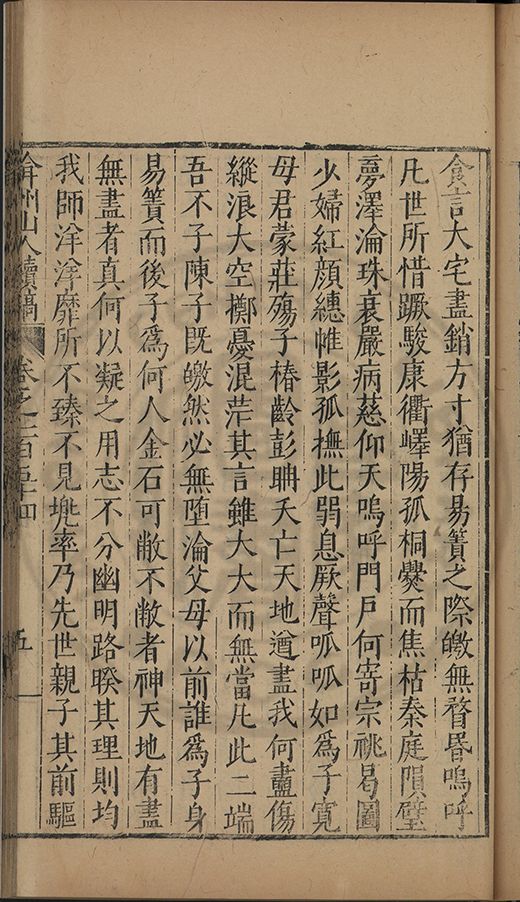 食言大宅盡銷方寸猶存易簀之際皦無瞀昬嗚呼
凡世所惜蹶駿康衢嶧陽孤桐爨而焦枯秦庭隕璧
夢澤淪珠衰嚴病慈仰天嗚呼門戶何寄宗祧曷圖
少婦紅顔繐帷影孤撫此弱息厥聲呱呱如爲子寬
毋君蒙莊殤子椿齡彭聃夭亡天地遒盡我何盡傷
縱浪大空擲憂混茫其言雖大大而無當凡此二端
吾不子陳子既皦然必無墮淪父母以前誰爲子身
易簀而後子爲何人金石可敝不敝者神天地有盡
無盡者真何以凝之用志不分幽明路暌其理則均
我師洋洋靡所不臻不見兠率乃先世親子其前驅
弇州山人續稿 卷之一百五十四 五